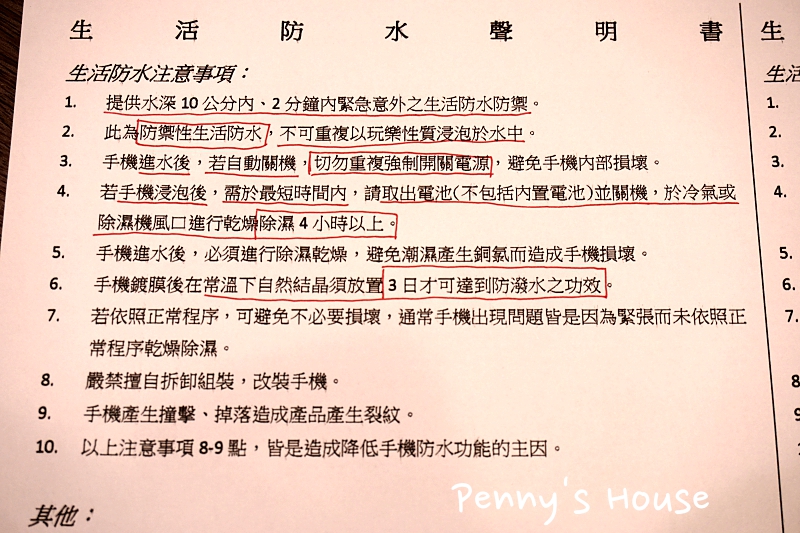 生活防水聲明書
生活防水注意事項：
1. 提供水深 10 公分內、2 分鐘內緊急意外之生活防水防禦。
2. 此為防禦性生活防水，不可重複以玩樂性質浸泡於水中。
3. 手機進水後，若自動關機，切勿重複強制開關電源，避免手機內部損壞。
4. 若手機浸泡後，需於最短時間內，請取出電池(不包括內置電池)並關機，於冷氣或
除濕機風口進行乾燥除濕 4 小時以上。
5. 手機進水後，必須進行除濕乾燥，避免潮濕產生銅氯而造成手機損壞。
6. 手機鍍膜後在常溫下自然結晶須放置 3 日才可達到防潑水之功效。
7. 若依照正常程序，可避免不必要損壞，通常手機出現問題皆是因為緊張而未依照正
常程序乾燥除濕。
8. 嚴禁擅自拆卸組裝，改裝手機。
9. 手機產生撞擊、掉落造成產品產生裂紋。
10. 以上注意事項 8-9 點，皆是造成降低手機防水功能的主因。
其他：
Penny's House
生
生活
1.
2.
3.
4.
5.
6.
7.
8
9